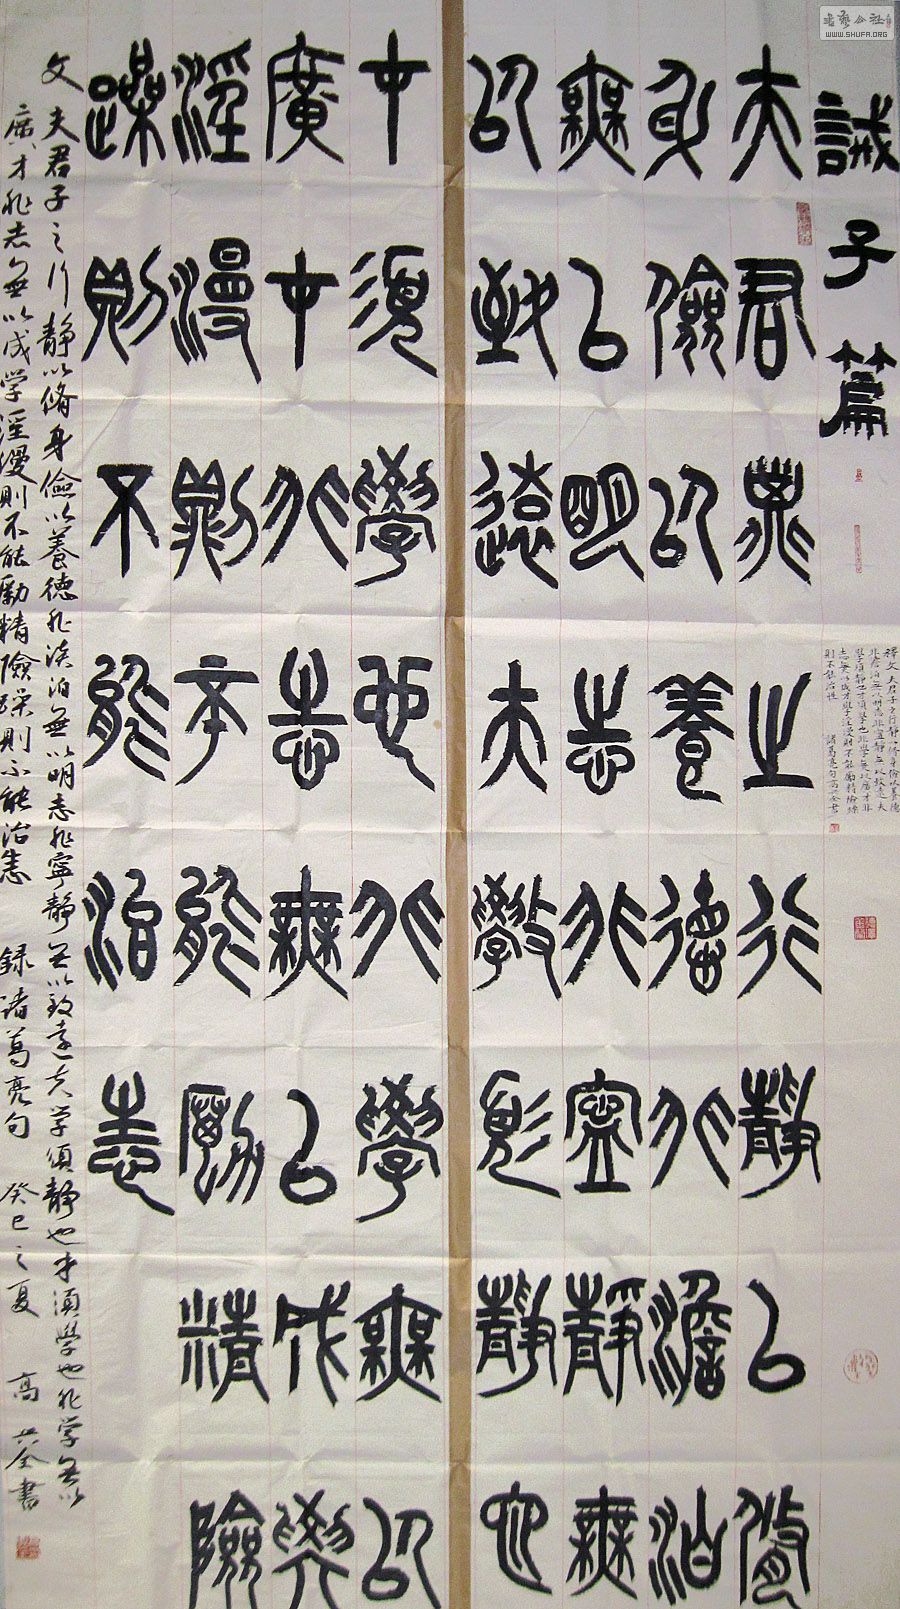 誡子篇
夫君子之行靜以脩
身儉以養德非澹泊
無以明志非寧靜無
以致遠夫學須靜也
才須學也非學無以
廣才非志無以成學
淫漫則不能勵精險
躁則不能治志
釋文 夫君子之行靜以修身儉以養德
非澹泊無以明志非寧靜無以致遠夫
學須靜也才須學也非學無以廣才非
志無以成學淫漫則不能勵精險燥
則不能治性 諸葛亮句
文夫君子之行靜以脩身儉以養德非淡泊無以明志非寧靜無以致遠夫学須靜也才須學也非学無以
廣才非志無以成学淫漫則不能勵精險躁則不能治志 録諸葛亮句 癸巳之夏 高共全書
WWW.SHUFA.ORG